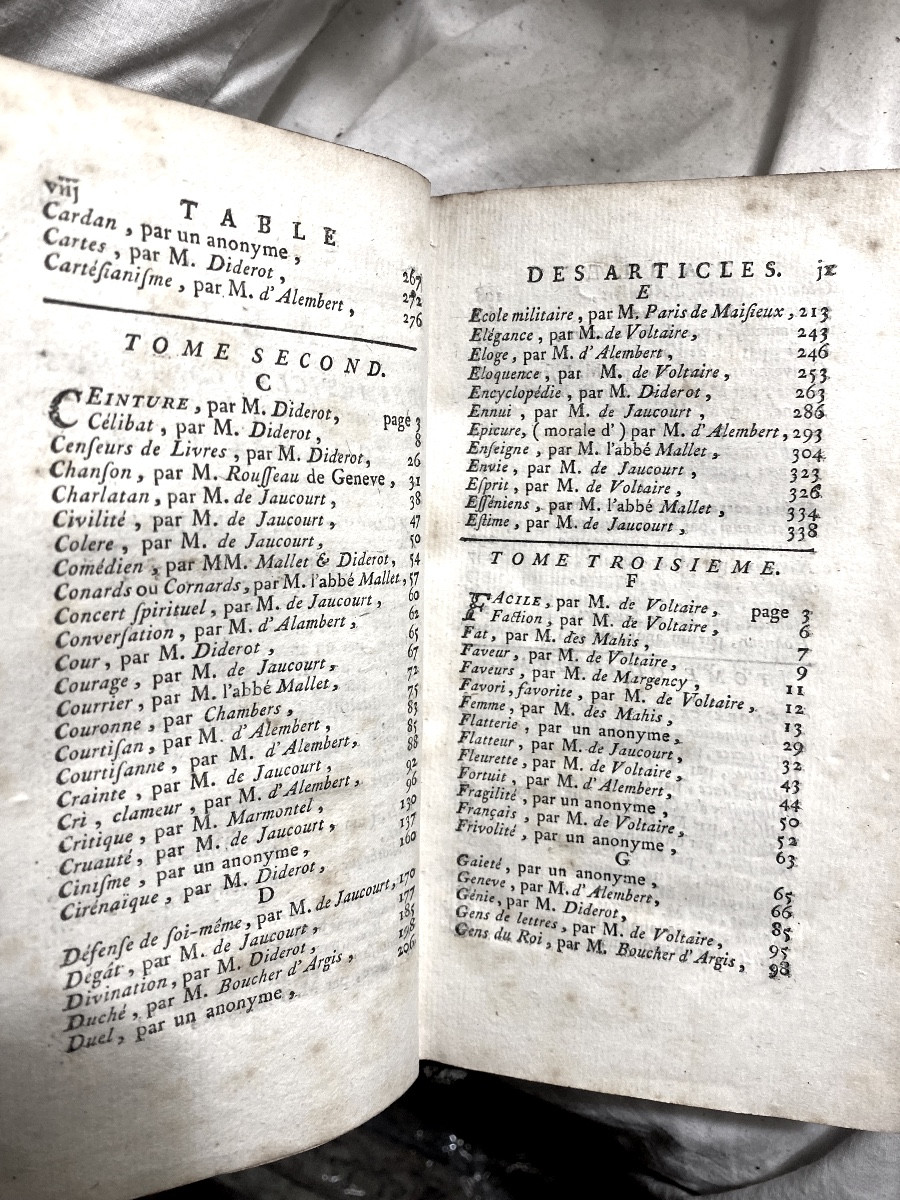 viij
TABLE
Cardan, par un anonyme, 267
Cartes, par M. Diderot, 272
Cartéſianiſme, par M. d'Alembert, 276
TOME SECOND.
C
CEINTURE, par M. Diderot, page 3
Célibat, par M. Diderot, 8
Cenſeurs de Livres, par M. Diderot, 26
Chanſon, par M. Rouſſeau de Geneve, 31
Charlatan, par M. de Jaucourt, 38
Civilité, par M. de Jaucourt, 47
Colere, par M. de Jaucourt, 50
Comédien, par MM. Mallet & Diderot, 54
Conards ou Cornards, par M. l'abbé Mallet, 57
Concert ſpirituel, par M. de Jaucourt, 60
Converſation, par M. d'Alambert, 62
Cour, par M. Diderot, 65
Courage, par M. de Jaucourt, 67
Courrier, par M. l'abbé Mallet, 72
Couronne, par Chambers, 75
Courtiſan, par M. d'Alembert, 83
Courtiſanne, par M. d'Alembert, 85
Crainte, par M. de Jaucourt, 88
Cri, clameur, par M. d'Alembert, 92
Critique, par M. Marmontel, 96
Cruauté, par M. de Jaucourt, 130
Ciniſme, par un anonyme, 137
Cirénaique, par M. Diderot, 160
D
Défenſe de ſoi-même, par M. de Jaucourt, 170
Dégât, par M. de Jaucourt, 177
Divination, par M. Diderot, 185
Duché, par M. Boucher d'Argis, 198
Duel, par un anonyme, 206
DES ARTICLES. jx
E
Ecole militaire, par M. Paris de Maiſieux, 213
Elégance, par M. de Voltaire, 243
Eloge, par M. d'Alembert, 246
Eloquence, par M. de Voltaire, 253
Encyclopédie, par M. Diderot, 263
Ennui, par M. de Jaucourt, 286
Epicure, (morale d') par M. d'Alembert, 293
Enſeigne, par M. l'abbé Mallet, 304
Envie, par M. de Jaucourt, 323
Eſprit, par M. de Voltaire, 326
Eſſéniens, par M. l'abbé Mallet, 334
Eſtime, par M. de Jaucourt, 338
TOME TROISIEME.
F
FACILE, par M. de Voltaire, page 3
Faction, par M. de Voltaire, 6
Fat, par M. des Mahis, 7
Faveur, par M. de Voltaire, 9
Faveurs, par M. de Margency, 11
Favori, favorite, par M. de Voltaire, 12
Femme, par M. des Mahis, 13
Flatterie, par un anonyme, 29
Flatteur, par M. de Jaucourt, 32
Fleurette, par M. de Voltaire, 43
Fortuit, par M. d'Alembert, 44
Fragilité, par un anonyme, 50
Français, par M. de Voltaire, 52
Frivolité, par un anonyme, 63
G
Gaieté, par un anonyme, 65
Geneve, par M. d'Alembert, 66
Génie, par M. Diderot, 85
Gens de lettres, par M. de Voltaire, 95
Gens du Roi, par M. Boucher d'Argis, 98